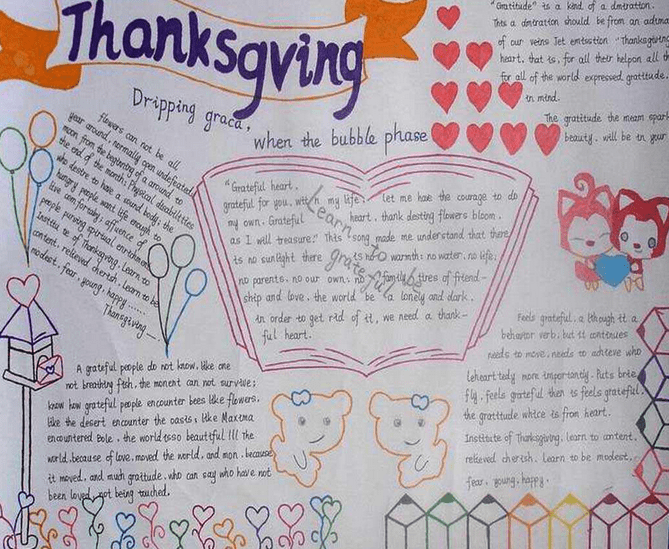 Thanksgving
Dripping graca,
when the bubble phase
"Gratitude" is a kind of a dmtration.
This a dmtration should be from an
of our veins Jet emtsstion "Thanksgivng
heart, that is, for all their helpon all th
for all of the world expressed gratitude.
in mind.
The gratitude the meam spark
beauty. will be in your
flowers can not be all
year around, normally open undefeated;
moon from the beginning of a around to
the end of the month; Physical disabilities
who desire to have a sound body; the
hungry people want life enough to
live on forsaby; affuence of
people pursing spiritual enrichment
Institu te of Thanksgiving. Learn to
content, relieved cherish. Learn to be
modest, fear, young, happy ......
Thanksgiving....
"Grateful heart.
grateful for you, with my life; let me hae the courage to do
my own. Grateful heart, thank destiny flowers bloom,
as I will treasure." This song made me understand that there
is no sunlight there is no warmth; no water, no life;
no parents, no our own; no family, tires of friend-
ship and love, the world be a lonely and dark.
in order to get rid of it, we need a thank-
ful heart.
Learn to be
grateful
A grateful people do not know, like one
not breathing fish, the monent can not survive;
know how grateful people encounter bees like flowers,
like the desert encounter the oasis, like Maxtma
encountered Bole. the world isso beauttful !!! The
world, because of love, moved the world, and mon. because
it moved, and much grattude, who can say who have not
been loved, not being touched.
Feels grateful, a lthough it a
behavior verb, but it continues
needs to move, needs to achieve who
leheart tedly more importantly. Puts brie
fly, feels grateful then is feels grateful,
the gratitude whice is fron heart.
Institute of Thanksgiving, learn to content,
relieved cherish. Learn to be modest,
fear, young, happy.